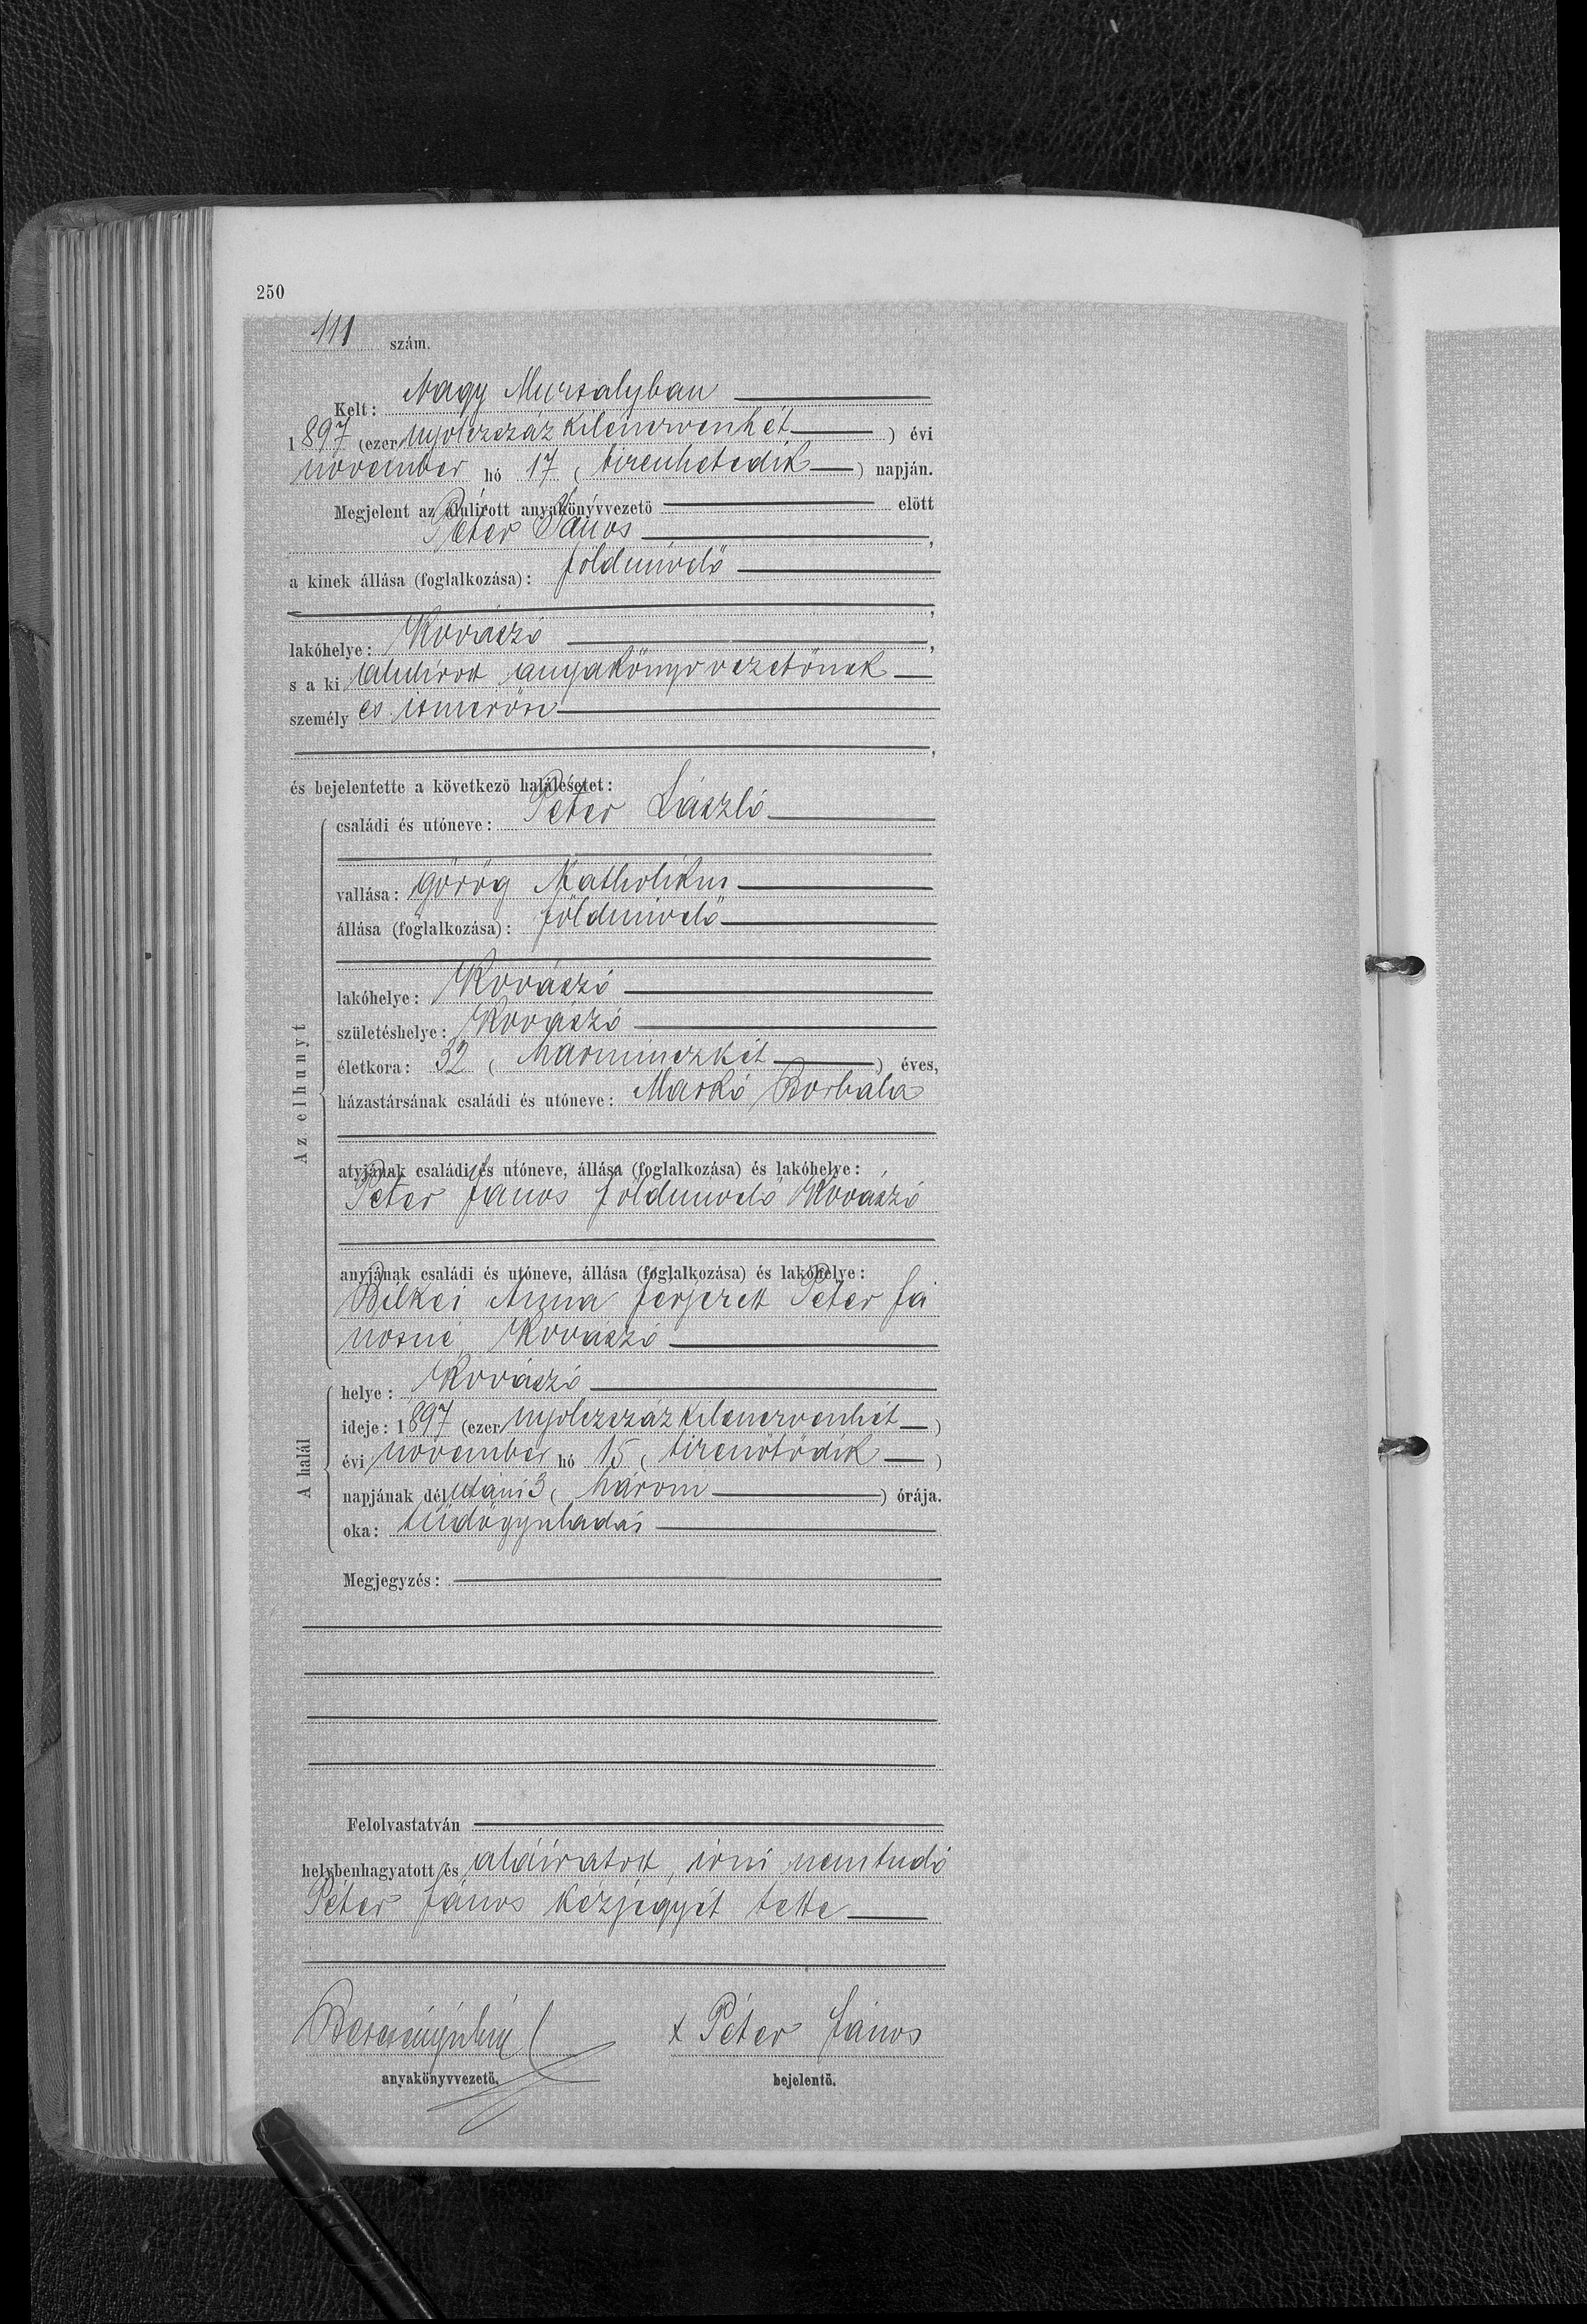 250
111 szám.
Kelt: Nagy Muzsalyban
1897 (ezer nyolczszáz kilenczvenhét) évi
november hó 17 (tizenhetedik) napján.
Megjelent az alulírott anyakönyvvezető előtt
Péter János,
a kinek állása (foglalkozása): földmívelő
,
lakóhelye: Kovászó,
s a ki alulírott anyakönyvvezetőnek
személyes ismerőse
,
és bejelentette a következő halálesetet:
Az elhunyt
családi és utóneve: Péter László
vallása: görög Katholikus
állása (foglalkozása): földmívelő
lakóhelye: Kovászó
születéshelye: Kovászó
életkora: 32 (harminczkét) éves,
házastársának családi és utóneve: Markó Borbála
atyjának családi és utóneve, állása (foglalkozása) és lakóhelye:
Péter János földmívelő Kovászó
anyjának családi és utóneve, állása (foglalkozása) és lakóhelye:
Bilkei Anna férjezett Péter Já
nosné, Kovászó
A halál
helye: Kovászó
ideje: 1897 (ezer nyolczszáz kilenczvenhét)
évi november hó 15 (tizenötödik)
napjának délutáni 3 (három) órája.
oka: tüdőgyuladás
Megjegyzés:
Felolvastatván
helybenhagyatott és aláíratott, írni nem tudó
Péter János kézjegyét tette
x Péter János
anyakönyvvezető. bejelentő.